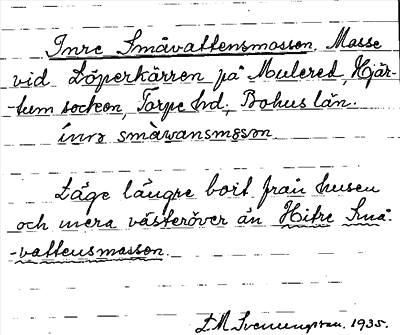 Inre Småvattensmossen. Mosse
vid Löperkärren på Mulered, Hjär-
-tum socken, Torpe hd., Bohus län.
ínrə smàvansmɔsən

Läge längre bort från husen
och mera västeröver än Hitre Små-
-vattensmossen.
1935.